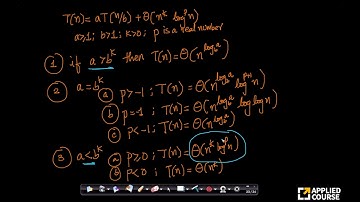 T(n) = aT(n/b) + Θ(n^k log^p n)
a≥1; b>1; k>0; p is a real number
① if a > b^k then T(n) = Θ(n^(log_b a))
② a = b^k
ⓐ p>-1; T(n) = Θ(n^(log_b a) log^(p+1) n)
ⓑ p=-1; T(n) = Θ(n^(log_b a) log log n)
ⓒ p<-1; T(n) = Θ(n^(log_b a))
③ a < b^k
ⓐ p≥0; T(n) = Θ(n^k log^p n)
ⓑ p<0; T(n) = Θ(n^k)
APPLIED
COURSE